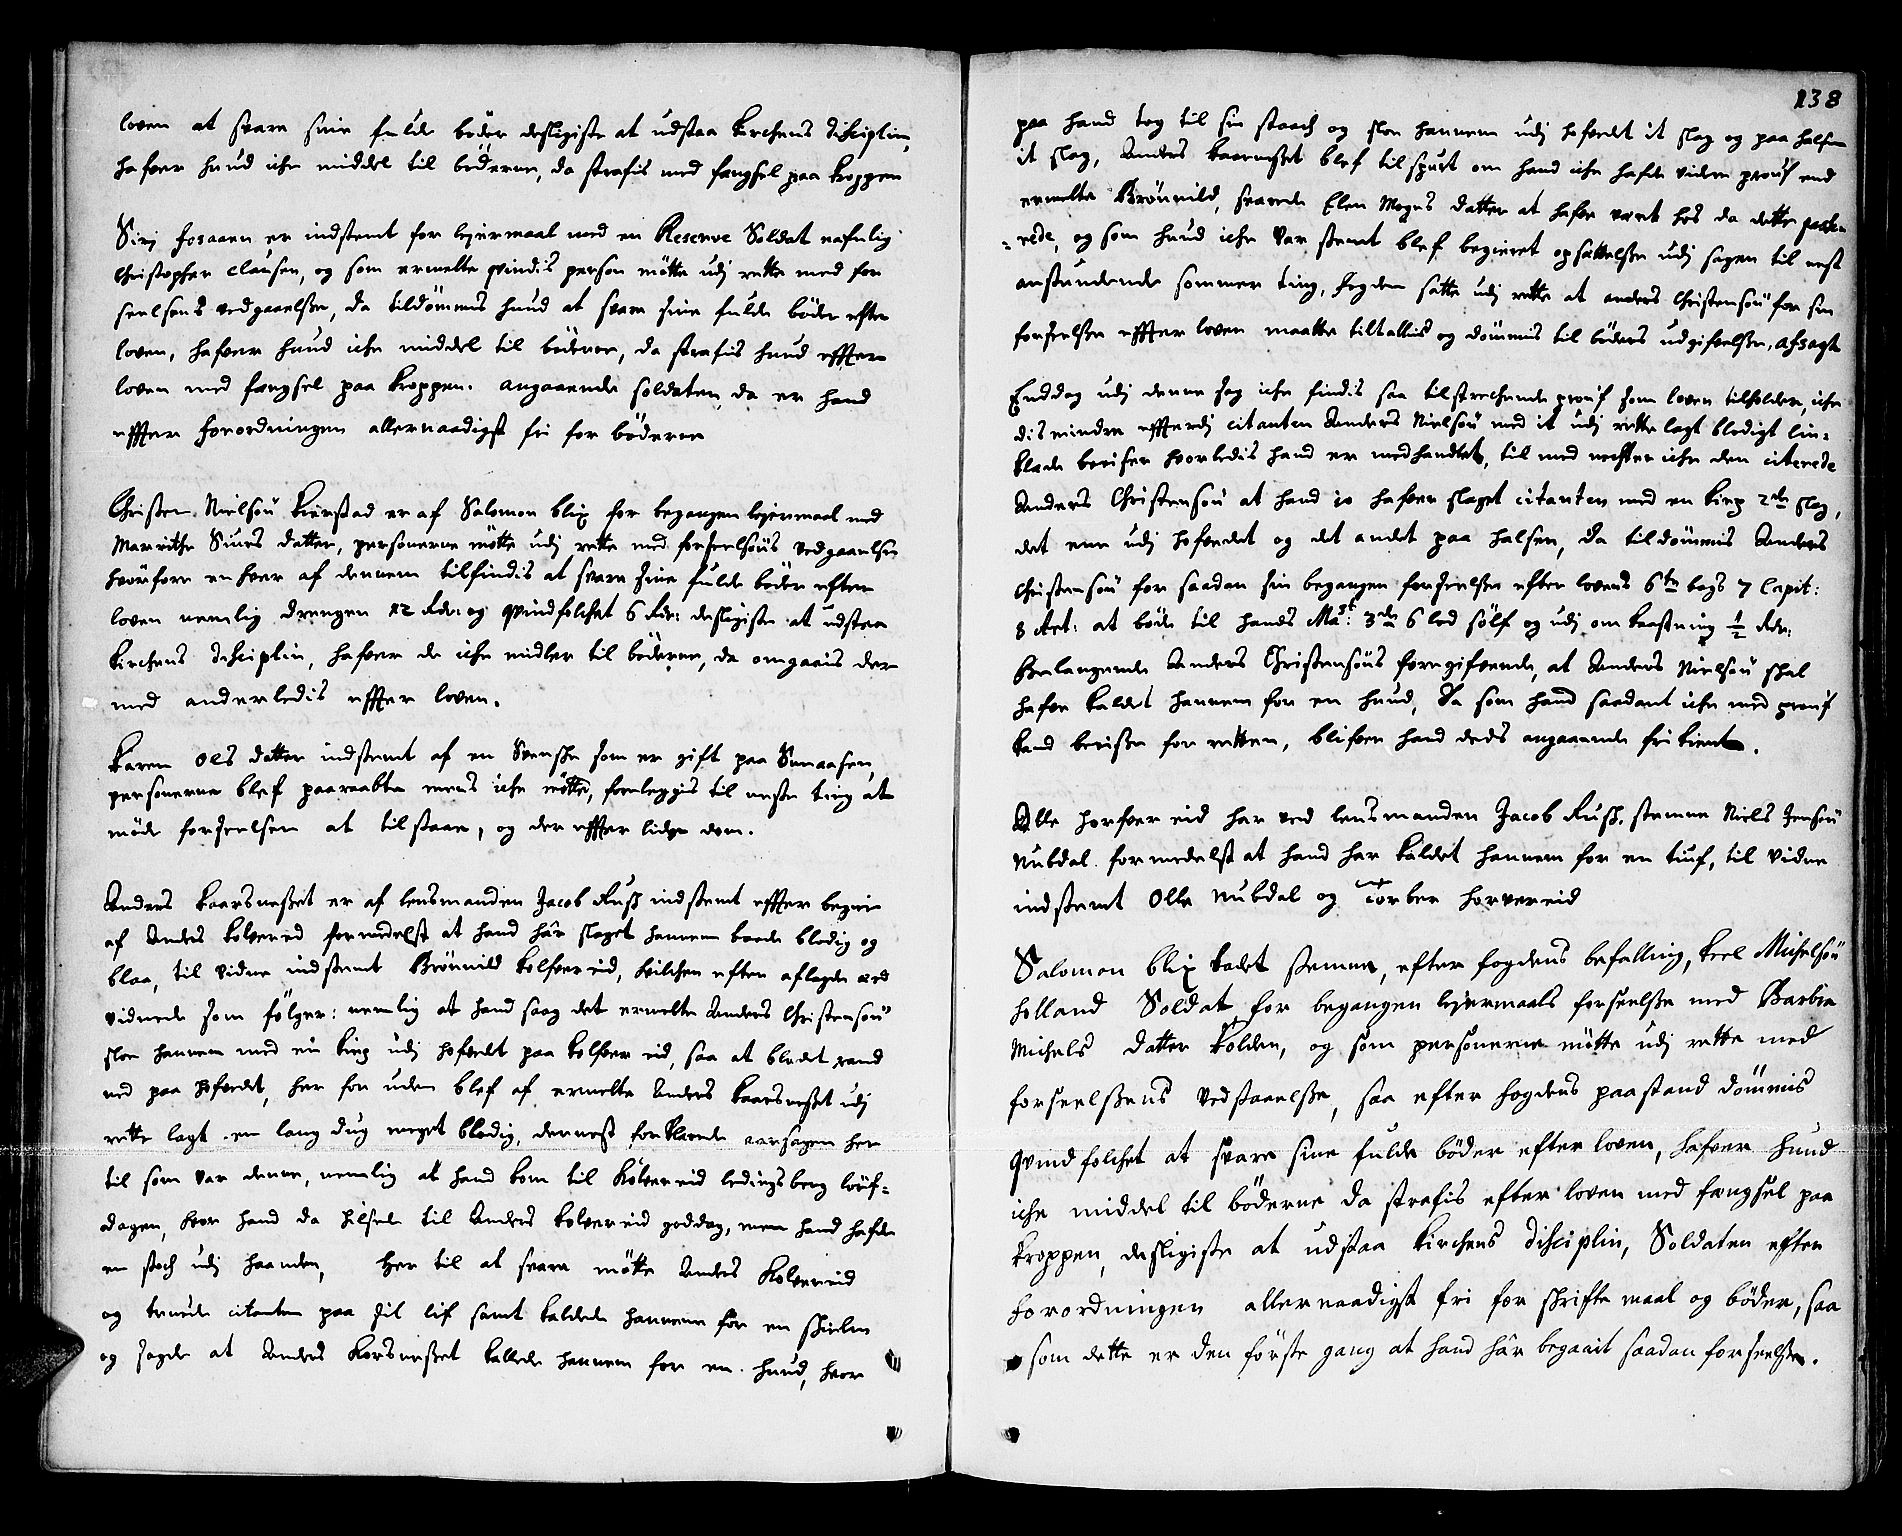 loven at svare sine fulde böder desligiste at udstaa Kirchens disciplin,
hafver hund iche middel til böderne, da strafis med fængsel paa Kroppen
Sirj fosaaen er indstemt for leyermaal med en Reserve Soldat nafnlig
Christopher Clausen, og som ermelte qvindis person mötte udj rette med for
seelsens vedgaaelsse, da tildömmis hund at svare sine fulde böder efter
loven, hafver hund iche middel til böderne, da strafis hund effter
loven med fængsel paa kroppen. angaaende soldaten, da er hand
effter forordningen allernaadigst fri for böderne
Christen Nielsön Kierstad er af Salomon blix for begangen leyermaal med
Marrithe Siurs datter, personerne mötte udj rette med forseelsens vedgaaelse
hvorfore en hver af dennem tilfindis at svare sine fulde böder efter
loven nemlig drengen 12 Rdr: og qvindfolchet 6 Rdr: desligiste at udstaa
Kirchens disciplin, hafver de iche midler til böderne, da omgaais der
med anderledis effter loven.
Karen Ols datter indstemt af en Svenske som er gift paa Snaasen,
personerne blef paaraabte mens iche mötte, foreleggis til neste ting at
möde forseelsen at tilstaae, og der effter lide dom.
Anders Kaarsnesset er af lensmanden Jacob Russ indstemt effter begier
af Anders Kolvereid formedelst at hand hâr slaget hannem baade blodig og
blaa, til vidne indstemt Brönnild Kolfvereid, hvilchen efter aflagde eed
vidnede som fölger: nemlig at hand saag det ermelte Anders Christensön
sloe hannem med en kiep udj hofvedet paa Kolfver eid, saa at blodet rand
ned paa hofvedet, her for uden blef af ermelte Anders Kaarsnesset udj
rette lagt en lang dug meget blodig, dernest forklarede aarsagen her
til som var denne, nemlig at hand kom til Kolvereid ledingsberg löuf-
dagen, hvor hand da hilsede til Anders Kolvereid goddag, men hand hafde
en stoch udj haanden, her til at svare mötte Anders Kolvereid
og truede citanten paa sit lif samt kaldede hannem for en skielm
og sagde at Anders Korsnesset kallede hannem for en hund, hvor
138
paa hand tog til sin staach og sloe hannem udj hofvedet it slag og paa halsen
it slag, Anders Kaarnesset blef tilspurt om hand iche hafde videre prouf end
ermelte Brönnild, svarede Elen Mogns datter at hafve været hos da dette passe-
rede, og som hund iche var stemt blef begieret opsettelsse udj sagen til nest
anstundende sommer ting, fogden satte udj rette at anders Christensön for sin
forseelsse effter loven maatte tiltallis og dömmis til böders udgifvelsse, Afsagt
Enddog udj denne sag iche findis saa tilstrechende prouf som loven tilholder, iche
dis mindre efftterdj citanten Anders Nielsön med it udj rette lagt blodigt lin-
klæde beviser hvorledis hand er medhandlet, til med necter iche den citerede
Anders Christensön at hand jo hafver slaget citanten med en kiep 2de slag,
det ene udj hofvedet og det andet paa halsen, da tildömmis Anders
Christensön for saadan sin begangen forseelsse efter lovens 6te bogs 7 Capit:
8 Art: at böde til hands Mast: 3de 6 lod sölf og udj om kaastning ½ Rdr:
Belangende Anders Christensöns foregifvende, at Anders Nielsön skal
hafve kaldet hannem for en hund, Da som hand saadant iche med prouf
kand bevisse for retten, blifver hand deds angaaende frikient.
Alle horfver eid har ved lensmanden Jacob Russ. stemne Niels Jensön
Nubdal formedelst at hand har kaldet hannem for en tiuf, til vidne
indstemt Olle Nubdal og Torber horvereid
Salomon blix ladet stemne, efter fogdens befalling, Keel Michelsön
holland Soldat for begangen leyermaals forseelsse med Barbra
Michels datter Kolden, og som personerne mötte udj rette med
forseelssens vedstaaelsse, saa efter fogdens paastand dömmis
qvindfolchet at svare sine fulde böder efter loven, hafver hund
iche middel til böderne da strafis efter loven med fængsel paa
kroppen, desligiste at udstaa Kirchens disciplin, Soldaten efter
forordningen allernaadigst fri for skriftemaal og böder, saa
som dette er den förste gang at hand hâr begaait saadan forseelsse.